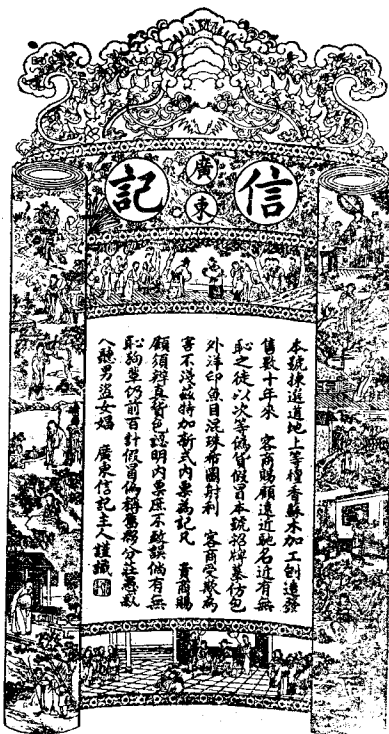 信
廣東
記
本號揀選道地上等檀香蘇木加工刨造發
售數十年來 客商賜顧遠近馳名近有無
恥之徒以次等僞貨假冒本號招牌摹仿包
外洋印魚目混珠希圖射利 客商受欺爲
害不淺茲特加新式內票爲記凡 貴商賜
顧須辨真貨包認明內票庶不致誤倘有無
恥狗輩仍前百計假冒偽稱舊夥分莊無
聽男盜女娼 廣東信記主人謹識